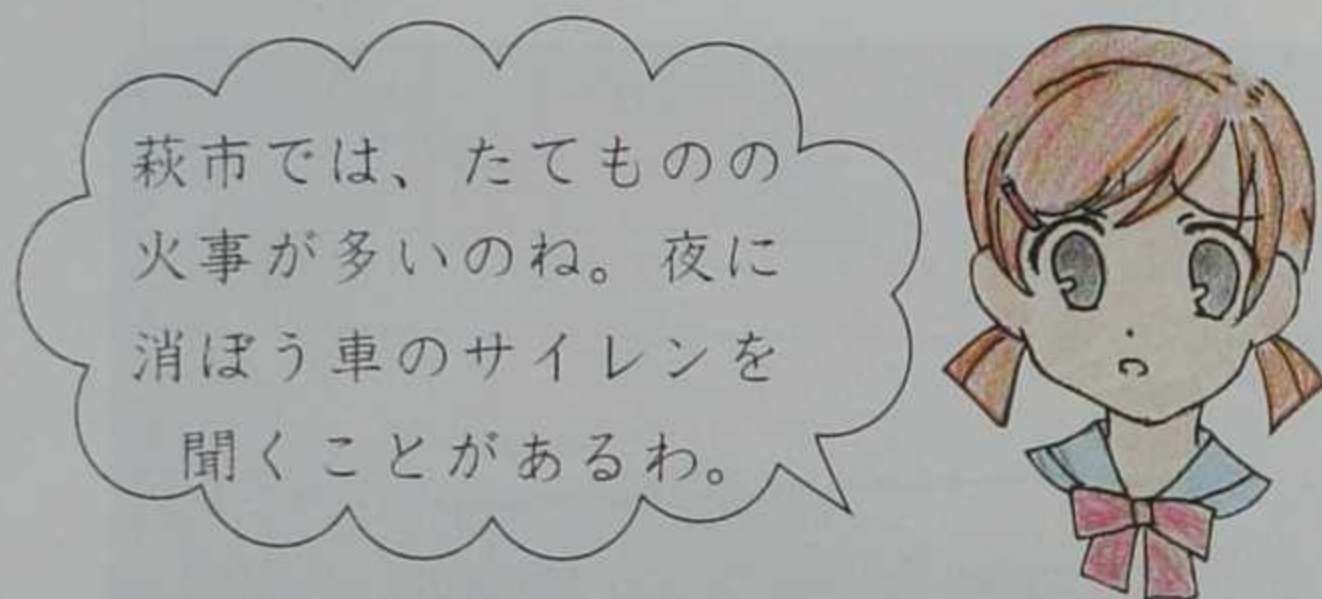 萩市では、たてものの
火事が多いのね。夜に
消ぼう車のサイレンを
聞くことがあるわ。